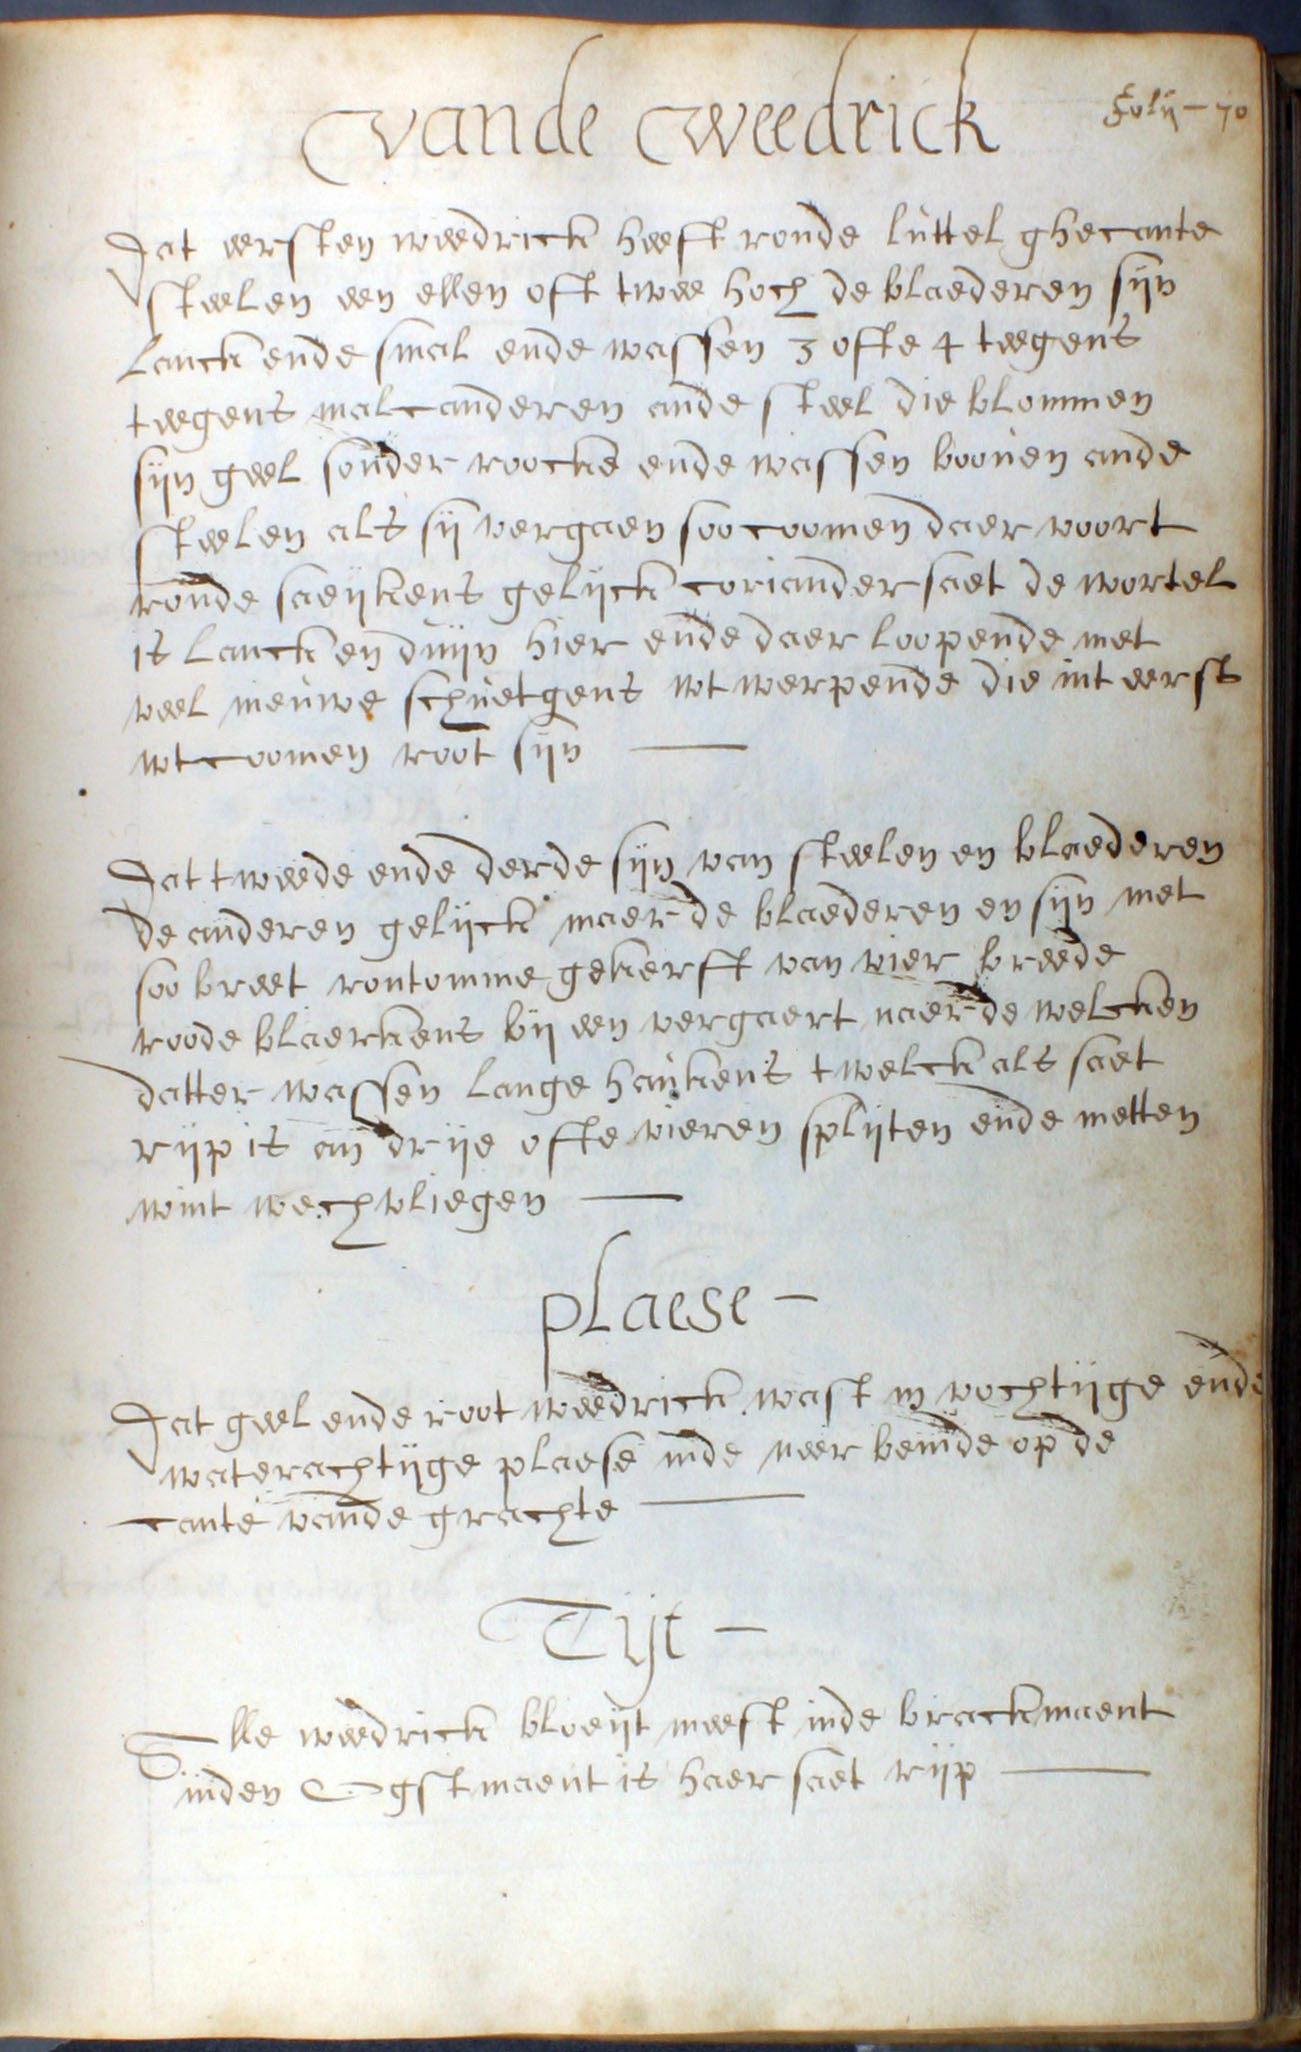 vande weedrick
Folij - 70
Dat eersten weedrick heeft ronde luttel ghecante
steelen een ellen oft twee hoch de blaederen sijn
lanck ende smal ende wassen 3 ofte 4 teegens
teegens malcanderen ande steel die blommen
sijn geel sonder roocke ende wassen booven ande
steelen als sij vergaen soo coomen daer voort
ronde saeijkens gelijck coriander saet de wortel
is lanck en duijn hier ende daer loopende met
veel nieuwe schuetgens wt werpende die int eerst
wt coomen root sijn
Dat tweede ende derde sijn van steelen en blaederen
de anderen gelijck maer de blaederen en sijn niet
soo breet rontomme gekerft van vier breede
roode blaerkens bij een vergaert naer de welcken
datter wassen lange haukens twelck als saet
rijp is an drije ofte vieren splijten ende metten
wint wech vliegen
plaese -
Dat geel ende root weedrick wast in vochtijge ende
waterachtijge plaese inde neer beemde op de
cante vande grachte
Tijt -
Alle weedrick bloeijt meest inde brackmaent
inden Ogstmaent is haer saet rijp